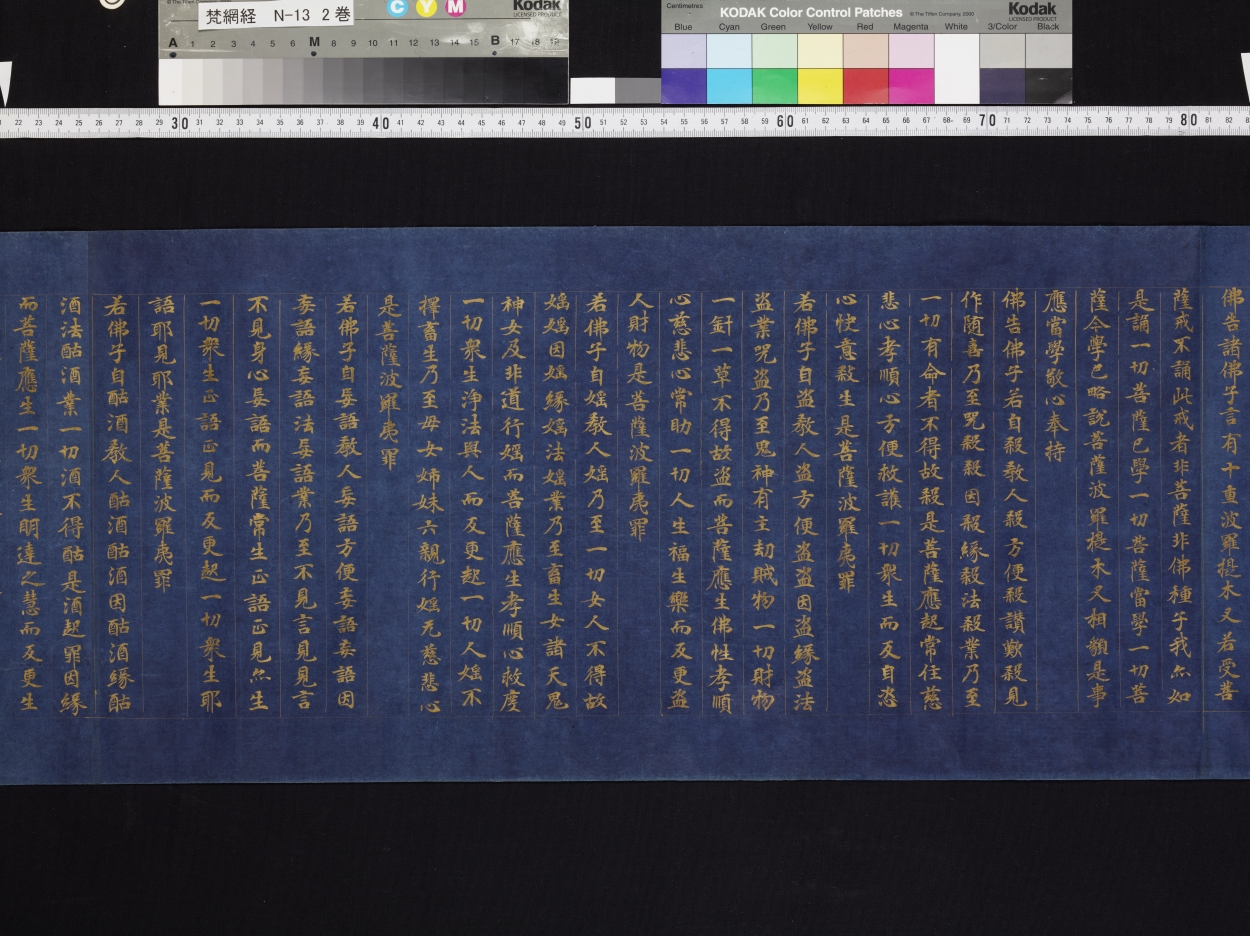 梵網経 N-13 2巻
Kodak
LICENSED PRODUCT
C Y M
A 1 2 3 4 5 6 M 8 9 10 11 12 13 14 15 B 17 18 19
Centimetres
KODAK Color Control Patches
© The Tiffen Company, 2000
Kodak
LICENSED PRODUCT
Blue Cyan Green Yellow Red Magenta White 3/Color Black
22 23 24 25 26 27 28 29 30 31 32 33 34 35 36 37 38 39 40 41 42 43 44 45 46 47 48 49 50 51 52 53 54 55 56 57 58 59 60 61 62 63 64 65 66 67 68 69 70 71 72 73 74 75 76 77 78 79 80 81 82
佛告諸佛子言有十重波羅提木叉若受菩
薩戒不誦此戒者非菩薩非佛種子我亦如
是誦一切菩薩已學一切菩薩當學一切菩
薩今學已略說菩薩波羅提木叉相貌是事
應當學敬心奉持
佛告佛子若自殺教人殺方便殺讚歎殺見
作随喜乃至咒殺殺因殺緣殺法殺業乃至
一切有命者不得故殺是菩薩應起常住慈
悲心孝順心方便救護一切衆生而反自恣
心快意殺生是菩薩波羅夷罪
若佛子自盜教人盜方便盜盜因盜緣盜法
盜業咒盜乃至鬼神有主劫賊物一切財物
一針一草不得故盜而菩薩應生佛性孝順
心慈悲心常助一切人生福生樂而反更盜
人財物是菩薩波羅夷罪
若佛子自婬教人婬乃至一切女人不得故
婬婬因婬緣婬法婬業乃至畜生女諸天鬼
神女及非道行婬而菩薩應生孝順心救度
一切衆生淨法與人而反更起一切人婬不
擇畜生乃至母女姉妹六親行婬无慈悲心
是菩薩波羅夷罪
若佛子自妄語教人妄語方便妄語妄語因
妄語緣妄語法妄語業乃至不見言見見言
不見身心妄語而菩薩常生正語正見亦生
一切衆生正語正見而反更起一切衆生耶
語耶見耶業是菩薩波羅夷罪
若佛子自酤酒教人酤酒酤酒因酤酒緣酤
酒法酤酒業一切酒不得酤是酒起罪因緣
而菩薩應生一切衆生明達之慧而反更生